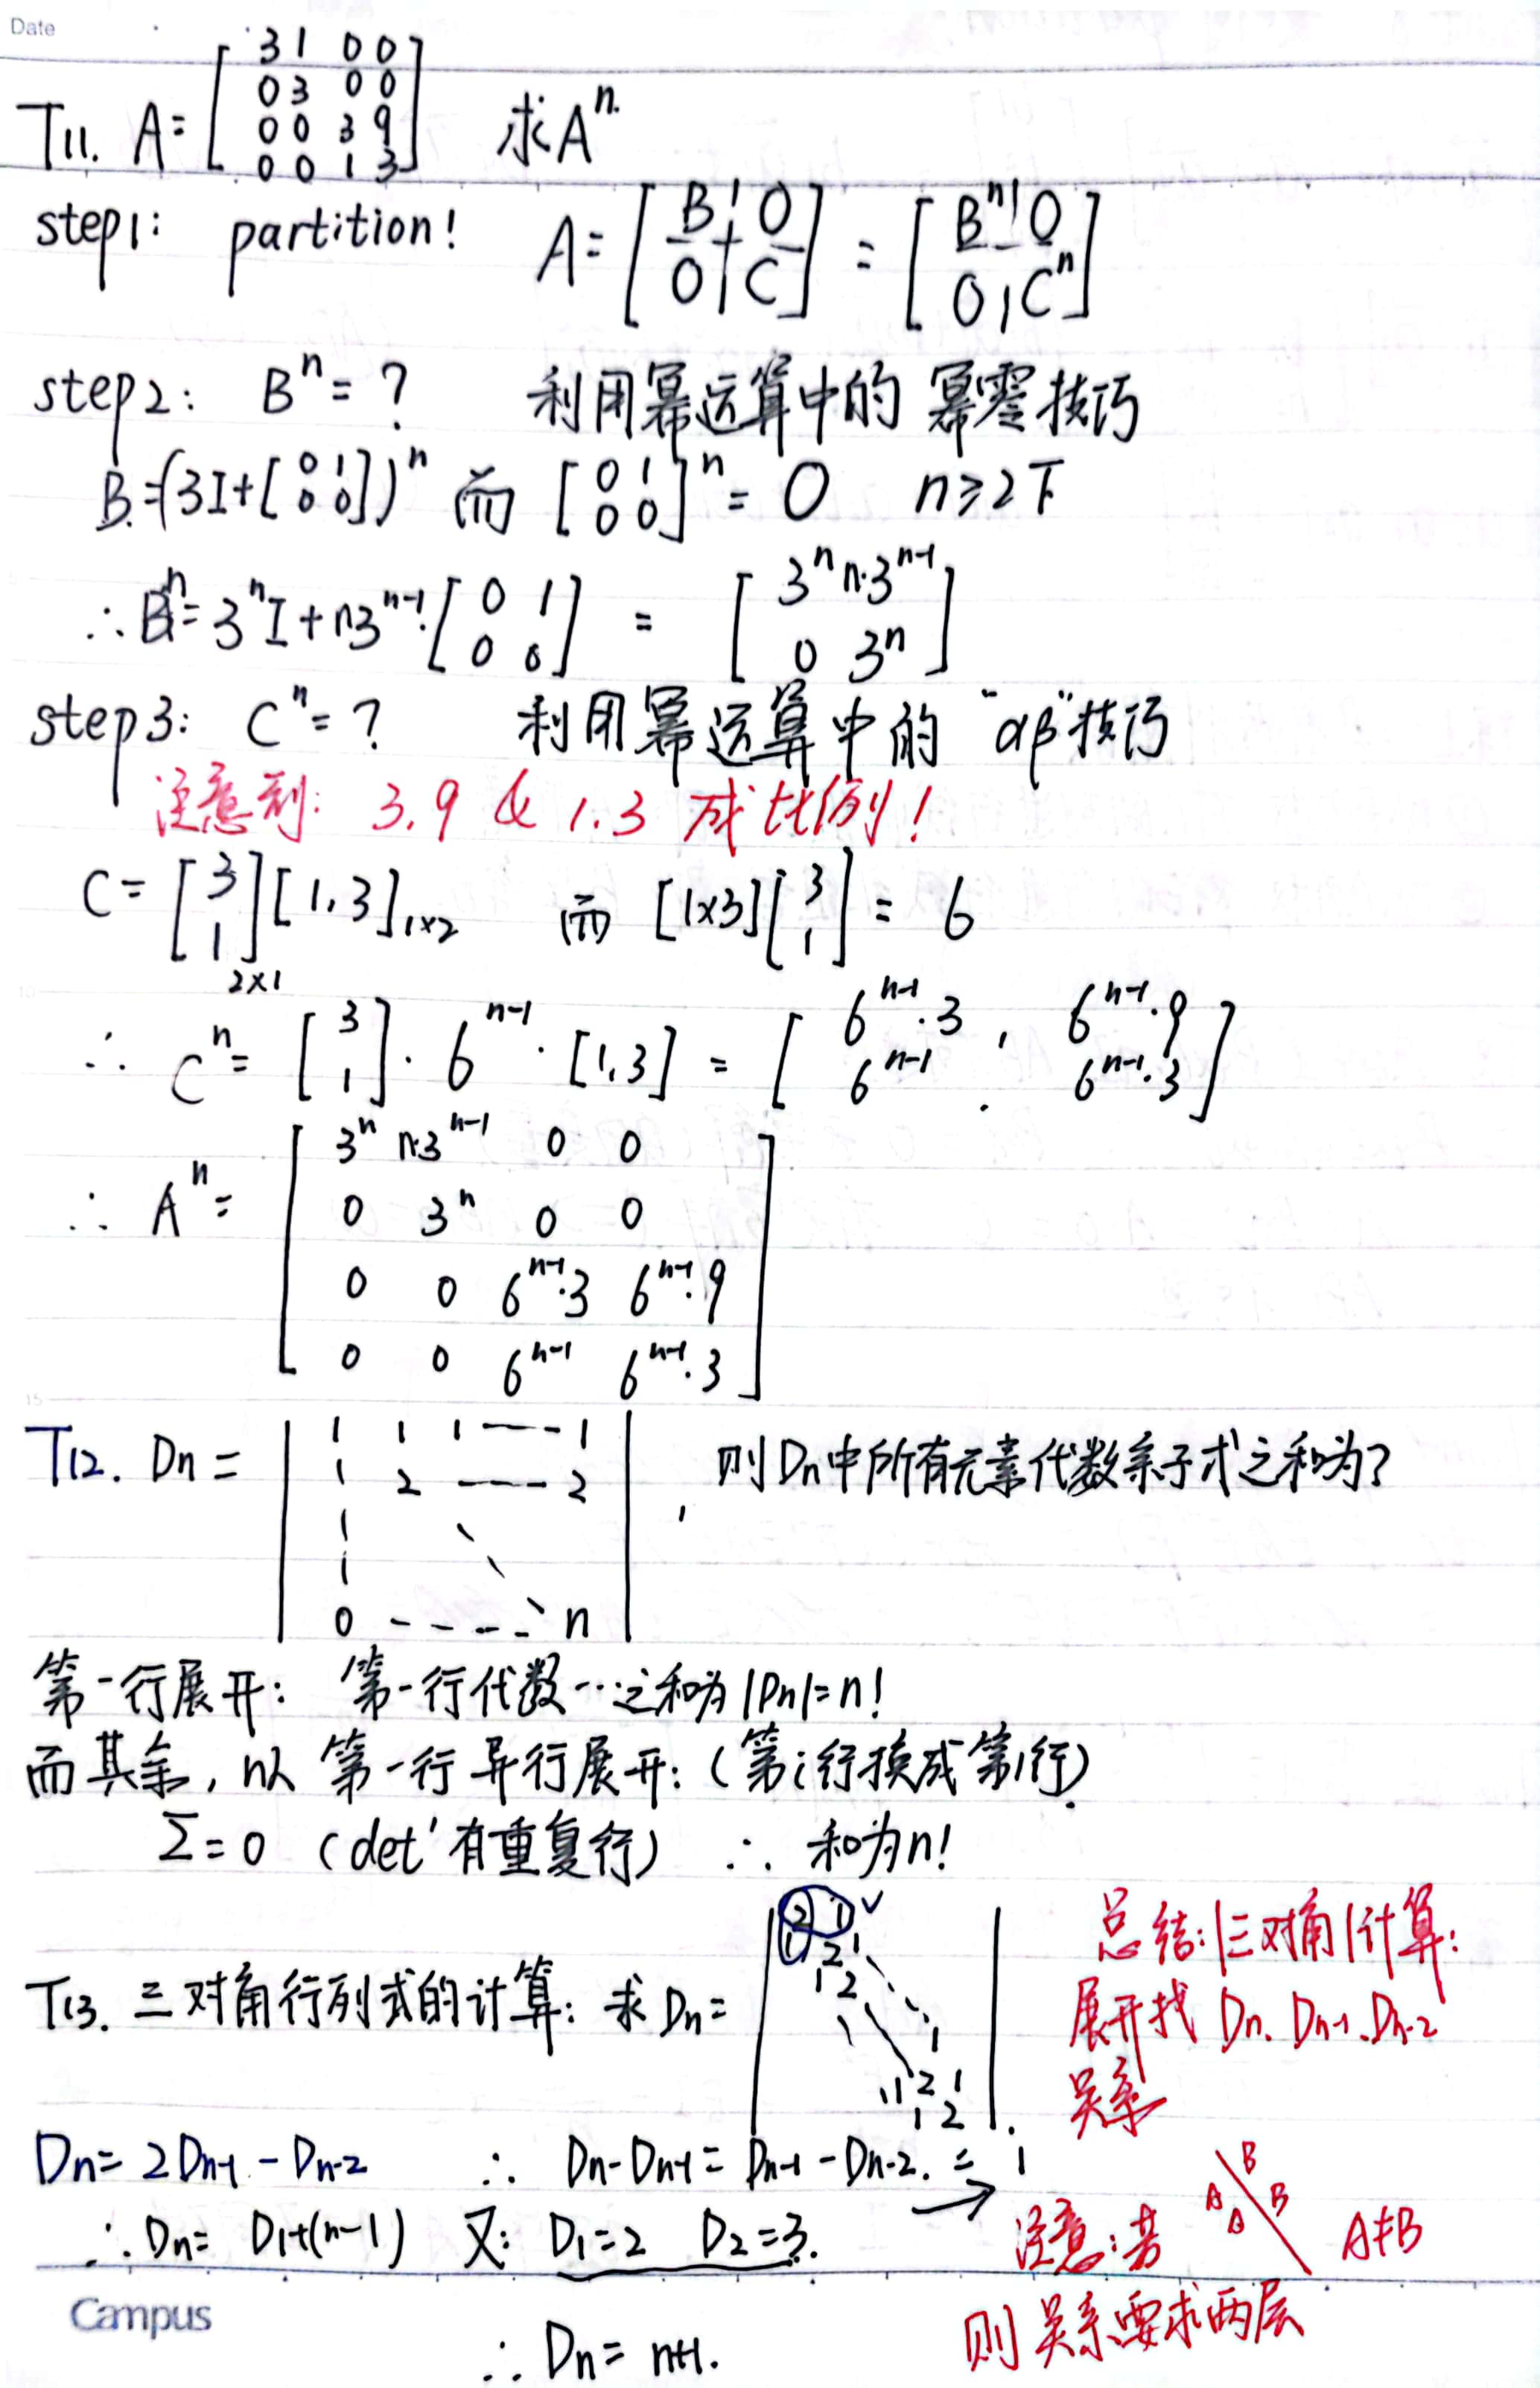 Date
T11. A= [ 3 1 0 0 ; 0 3 0 0 ; 0 0 3 9 ; 0 0 1 3 ] 求Aⁿ
step1: partition! A= [ B O ; O C ] = [ Bⁿ O ; O Cⁿ ]
step2: Bⁿ= ? 利用幂运算中的 幂零技巧
B.=(3I+[ 0 1 ; 0 0 ])ⁿ 而 [ 0 1 ; 0 0 ]ⁿ= O n≥2下
∴ Bⁿ= 3ⁿI + n3ⁿ⁻¹·[ 0 1 ; 0 0 ] = [ 3ⁿ n·3ⁿ⁻¹ ; 0 3ⁿ ]
step3: Cⁿ= ? 利用幂运算中的 "αβ"技巧
注意到: 3.9 & 1.3 成比例!
C= [ 3 ; 1 ]2×1 [1,3]1×2 而 [1×3][ 3 ; 1 ] = 6
∴ Cⁿ= [ 3 ; 1 ] · 6ⁿ⁻¹ · [1,3] = [ 6ⁿ⁻¹·3 , 6ⁿ⁻¹·9 ; 6ⁿ⁻¹ . 6ⁿ⁻¹·3 ]
∴ Aⁿ= [ 3ⁿ n·3ⁿ⁻¹ 0 0 ; 0 3ⁿ 0 0 ; 0 0 6ⁿ⁻¹·3 6ⁿ⁻¹·9 ; 0 0 6ⁿ⁻¹ 6ⁿ⁻¹·3 ]
T12. Dn = | 1 1 1 ---- 1 ; 1 2 ---- 2 ; 0 ----- n | , 则Dn中所有元素代数余子式之和为?
第一行展开: 第一行代数…之和为|Dn|=n!
而其余, 以 第一行 异行展开: (第i行换成第1行).
Σ=0 (det' 有重复行) ∴ 和为n!
T13. 三对角行列式的计算: 求Dn= | 2 1 ; 1 2 1 ; 1 2 ; 1 ; 1 2 1 ; 1 2 | .
总结:|三对角|计算:
展开找 Dn. Dn-1. Dn-2
关系
Dn= 2Dn-1 - Dn-2 ∴ Dn-Dn-1= Dn-1 - Dn-2. = 1
∴ Dn= D1+(n-1) 又: D1=2 D2=3.
注意:若 A A \ B B A≠B
则 关系要求两层
Campus
∴ Dn= n+1.